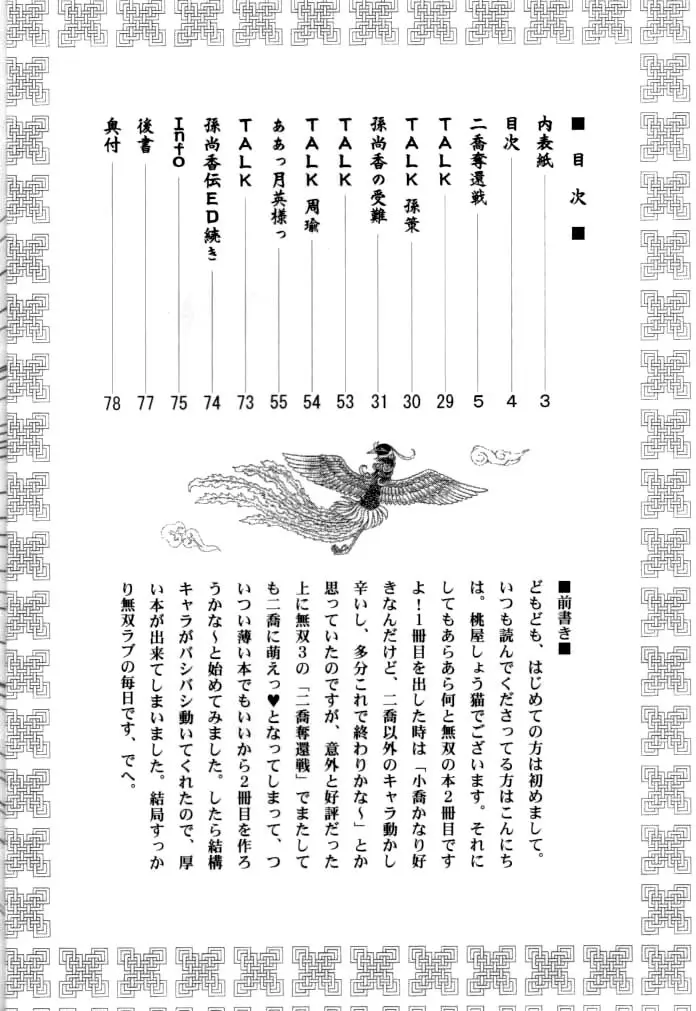 ■ 目 次 ■
内表紙 3
目次 4
二喬奪還戦 5
TALK 29
TALK 孫策 30
孫尚香の受難 31
TALK 53
TALK 周瑜 54
ああっ月英様っ 55
TALK 73
孫尚香伝ED続き 74
Info 75
後書 77
奥付 78
■前書き■
どもども、はじめての方は初めまして。
いつも読んでくださってる方はこんにち
は。桃屋しょう猫でございます。それに
してもあらあら何と無双の本2冊目です
よ！1冊目を出した時は「小喬かなり好
きなんだけど、二喬以外のキャラ動かし
辛いし、多分これで終わりかな～」とか
思っていたのですが、意外と好評だった
上に無双3の「二喬奪還戦」でまたして
も二喬に萌えっ♥となってしまって、つ
いつい薄い本でもいいから2冊目を作ろ
うかな～と始めてみました。したら結構
キャラがバシバシ動いてくれたので、厚
い本が出来てしまいました。結局すっか
り無双ラブの毎日です、でへ。